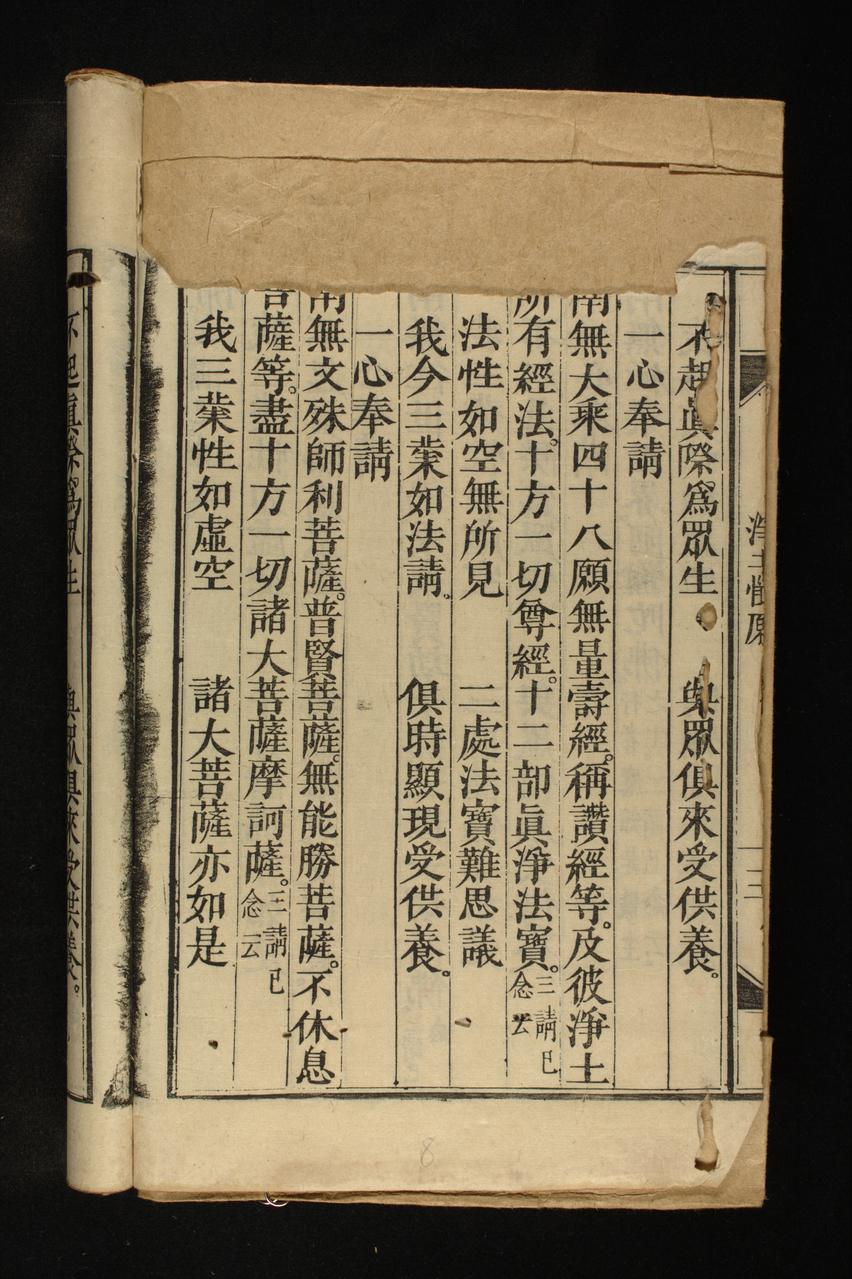 不起眞際爲眾生 與眾俱來受供養。
一心奉請
南無大乘四十八願無量壽經。稱讚經等。及彼淨土
所有經法。十方一切尊經。十二部眞淨法寶。三請已念云
法性如空無所見 二處法寶難思議
我今三業如法請。 俱時顯現受供養。
一心奉請
南無文殊師利菩薩。普賢菩薩。無能勝菩薩。不休息
菩薩等。盡十方一切諸大菩薩摩訶薩。三請已念云
我三業性如虛空 諸大菩薩亦如是
淨土懺願
三
不起眞際爲眾生 與眾俱來受供養。
8